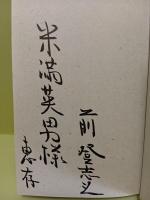 米満英男様
恵存
前登志夫